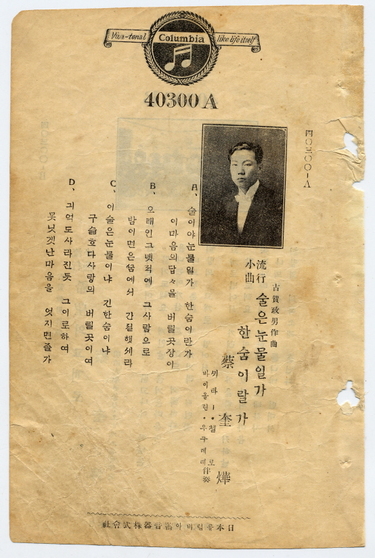 Viva-tonal Columbia like life itself
40300A
40300-A
流行小曲
古賀政男作曲
술은눈물일가
한숨이랄가
蔡奎燁
A、 술이야눈물일가 한숨이란가
이마음의답々을 버릴곳장이
B、 오래인그녯적에 그사람으로
밤이면은꿈에서 간절햇서라
C、 이술은눈물이냐 긴한숨이냐
구슯흐다사랑의 버릴곳이여
D、 긔억도사라진듯 그이로하여
못닛겟난마음을 엇지면졸가
日本콜럼비아蓄音器株式會社